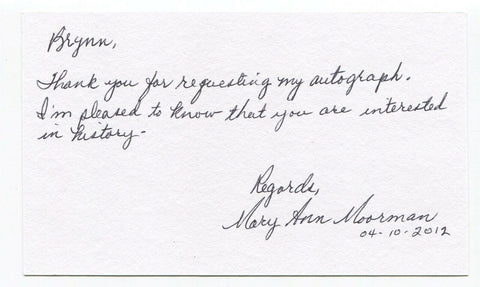 Brynn,
Thank you for requesting my autograph.
I'm pleased to know that you are interested
in history.
Regards,
Mary Ann Moorman
04-10-2012